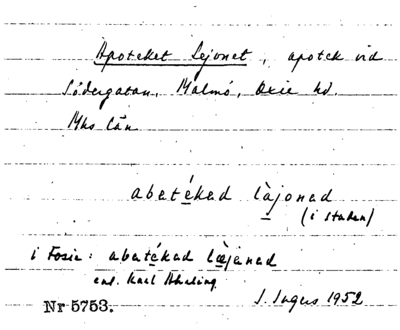 Apoteket Lejonet, apotek vid
Södergatan, Malmö, Oxie hd.
Mhs län
abatékad làjonad
(i staden)
i Fosie: abatékad læjanad
enl. Karl
Nr 5753.
J. Ingers 1952